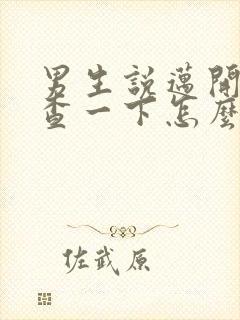 男生說邁開
查一下怎麼
佐武原